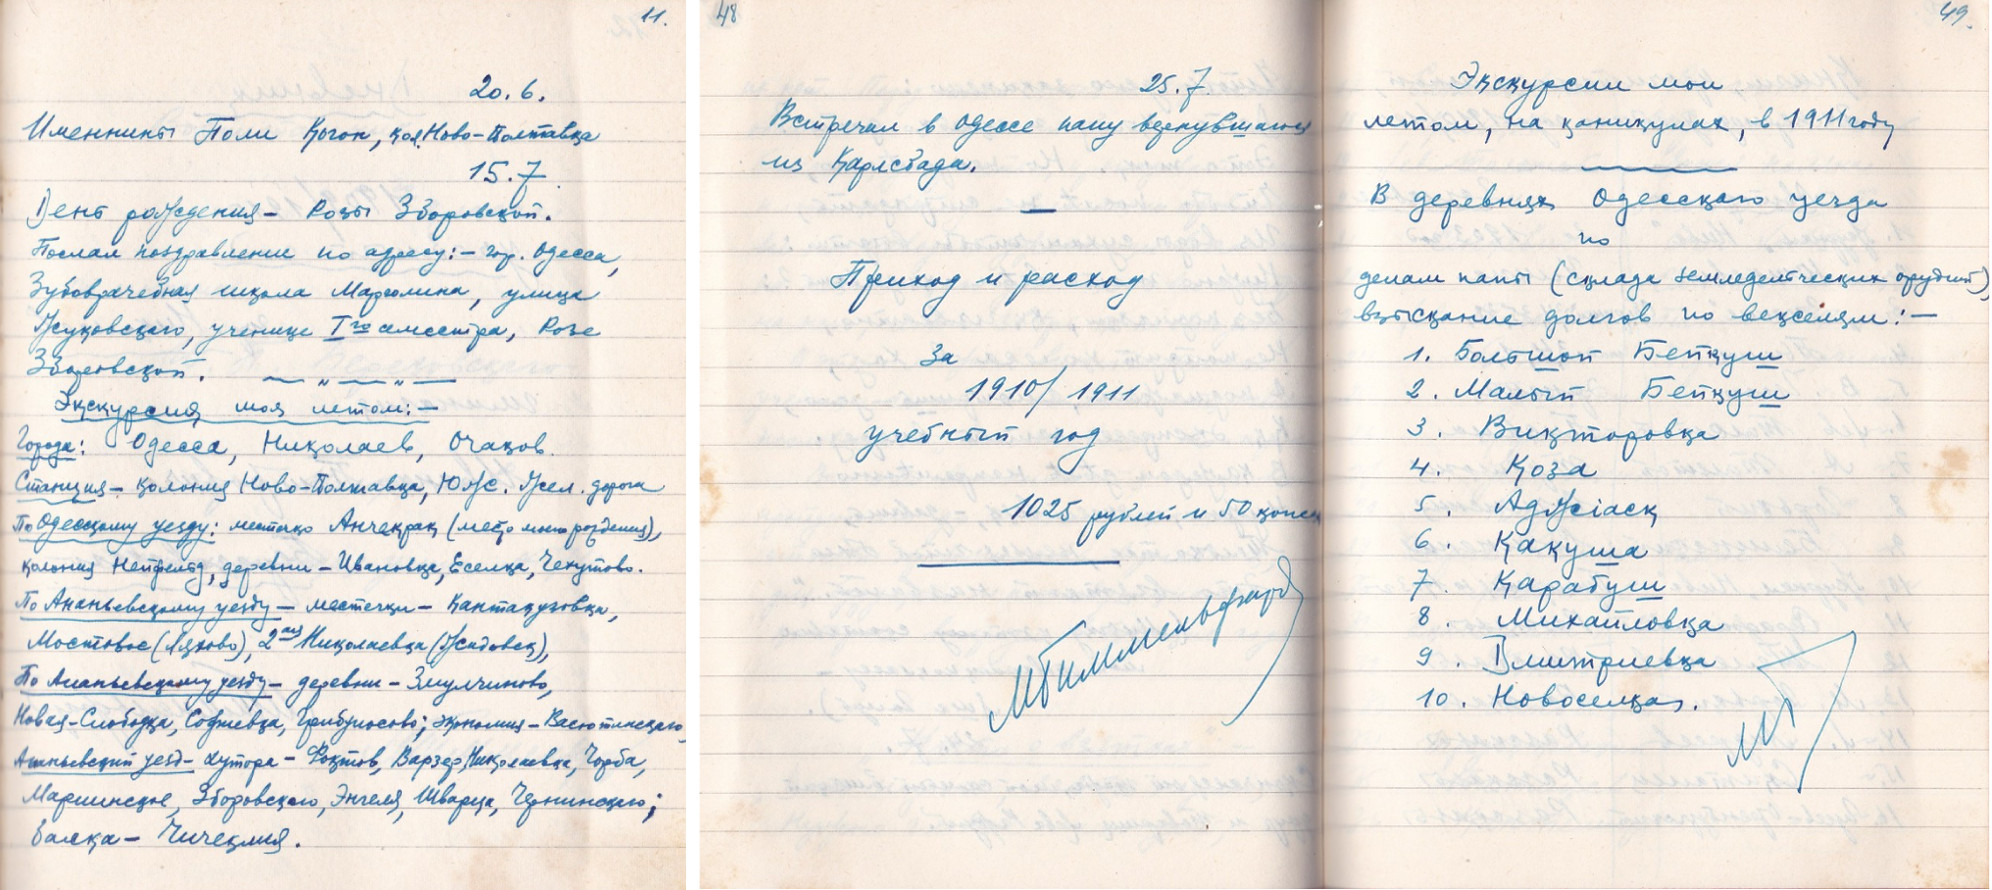 11.
20.6.
Именины Поли Коган, кол. Ново-Полтавка
15.7
День рождения - Розы Зборовской.
Послал поздравление по адресу: - гор. Одесса,
Зубоврачебная школа Марголина, улица
Жуковского, ученице I го семестра, Розе
Зборовской. — „ — „ —
Экскурсия моя летом: -
Города: Одесса, Николаев, Очаков.
Станция - колония Ново-Полтавка, Юж. Жел. дорога
По Одесскому уезду: местечко Анчекрак (место моего рождения),
колония Нейфельд, деревни - Ивановка, Еселка, Чекутово.
По Ананьевскому уезду - местечки - Кантакузовка,
Мостовое (Ляхово), 2ая Николаевка (Жидовск),
По Ананьевскому уезду - деревни - Змулчиново,
Новая-Слободка, Софиевка, Грибоносово; экономия - Васютинского,
Ананьевский уезд - хутора - Фоктов, Варзер, Николаевка, Чорба,
Мариинское, Зборовского, Энгеля, Шварца, Чернинского;
балка - Чичеклия.
48
25.7.
Встречал в Одессе папу вернувшагося
из Карлсбада.
—
Приход и расход
За
1910/1911
учебный год
1025 рублей и 50 копеек
МГиммельфарб
49.
Экскурсии мои
летом, на каникулах, в 1911 году
В деревнях Одесского уезда
по
делам папы (склада земледельческих орудий),
взыскание долгов по векселям: -
1. Большой Бейкуш
2. Малый Бейкуш
3. Викторовка
4. Коза
5. Аджiаск
6. Какуша
7. Карабуш
8. Михайловка
9. Дмитриевка
10. Новоселка.
МГ